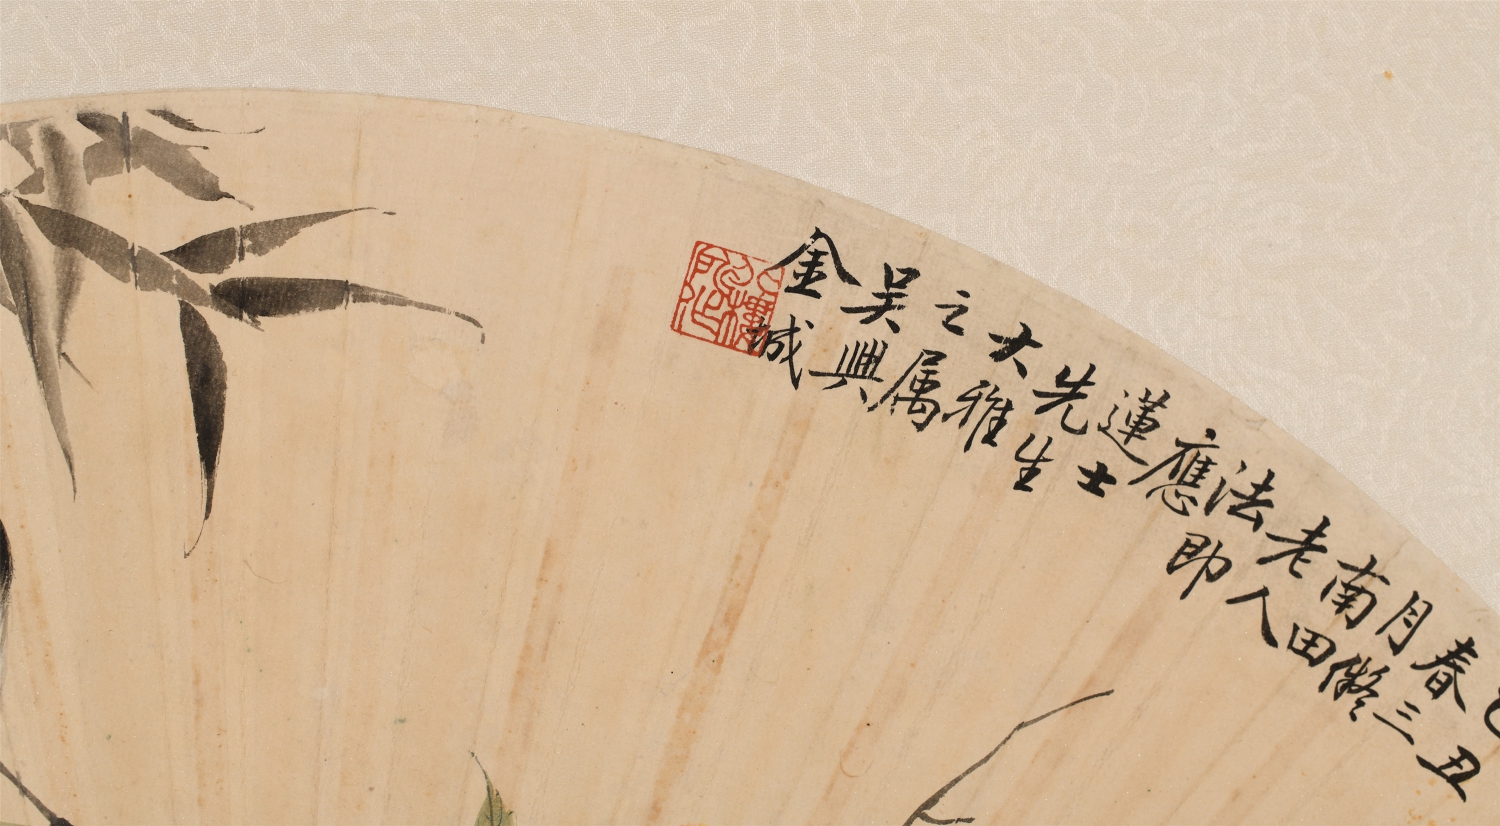 丑
春三
月儗
南田
老人
法即
應
蓮士
先生
大雅
之属
吴興
金城